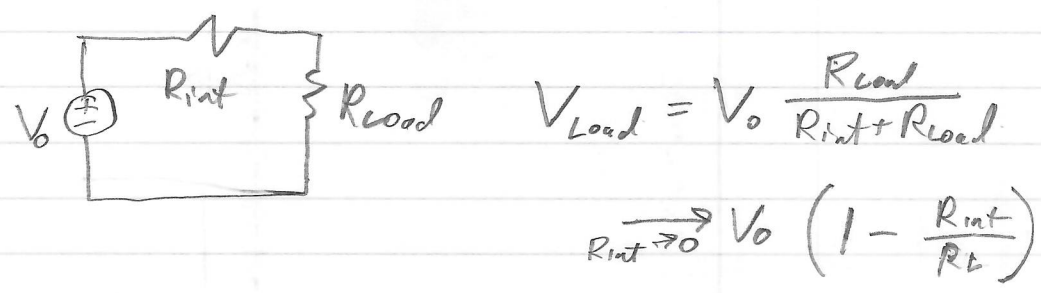 V₀ + − R_int R_Load
V_Load = V₀ R_Load / (R_int + R_Load)
⟶ R_int → 0 V₀ (1 − R_int / R_L)